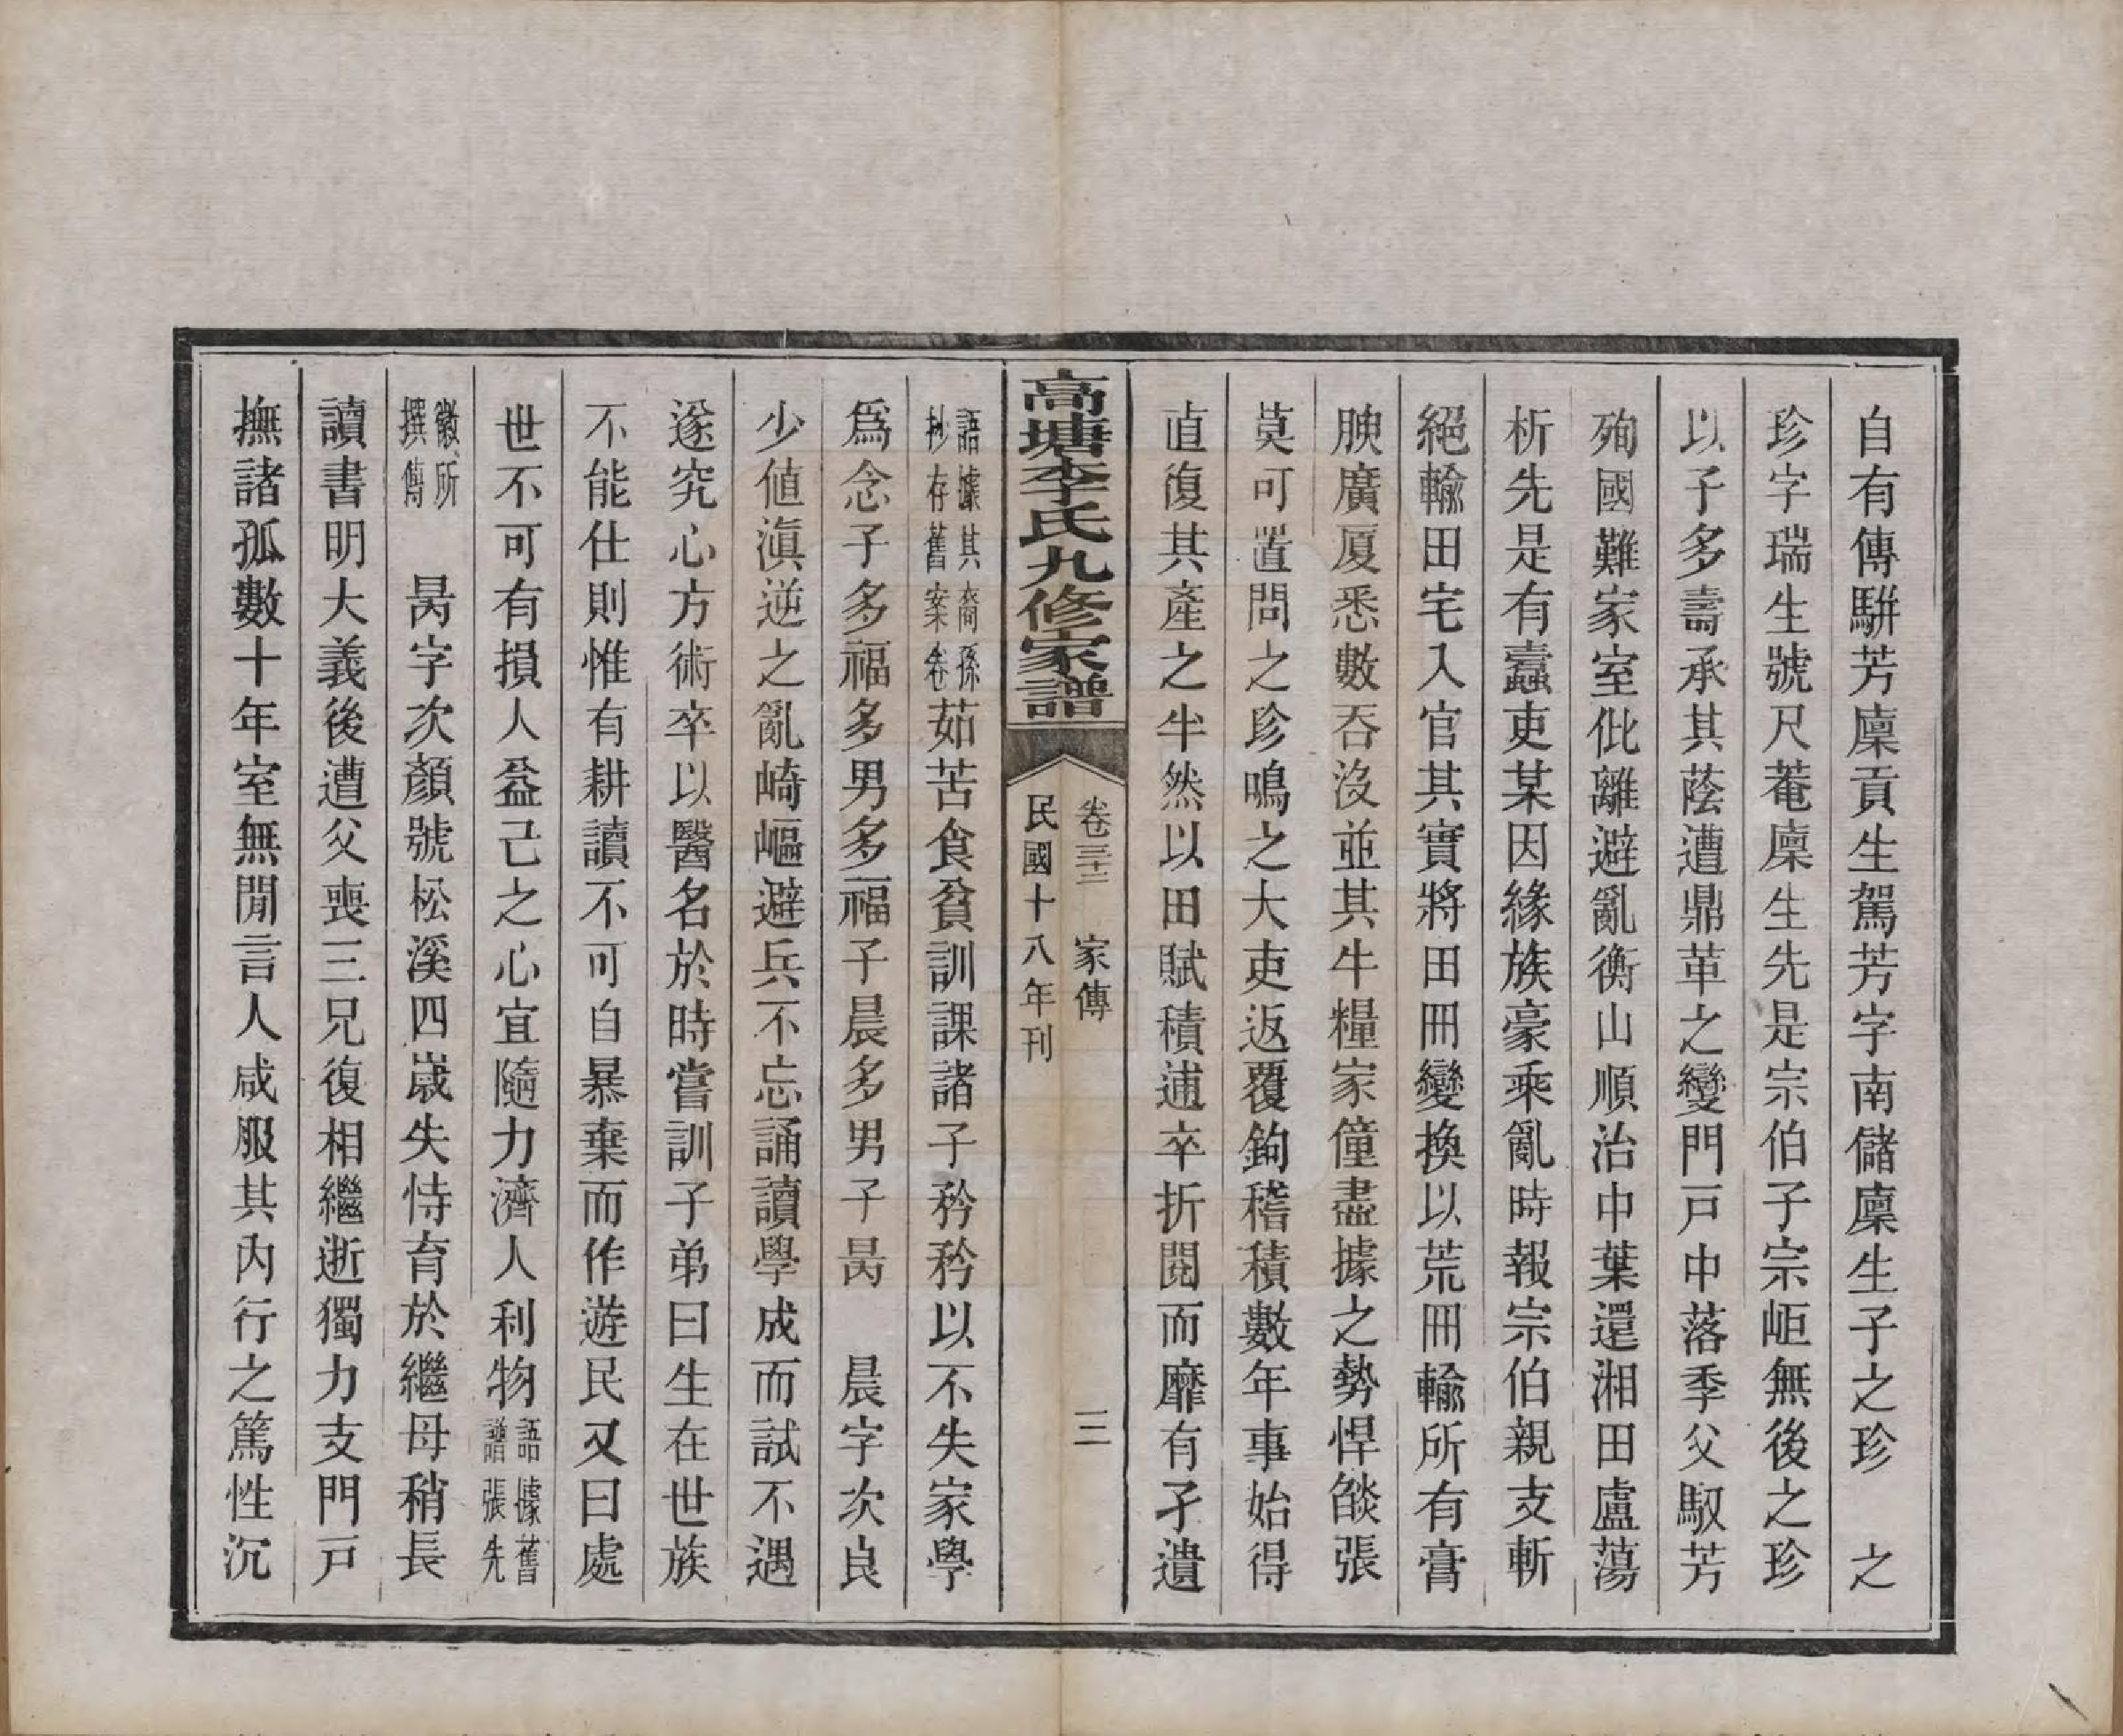 自有傳駢芳廩貢生駕芳字南儲廩生子之珍　之
珍字瑞生號尺菴廩生先是宗伯子宗岠無後之珍
以子多壽承其蔭遭鼎革之變門戸中落季父馭芳
殉國難家室仳離避亂衡山順治中葉還湘田盧蕩
析先是有蠹吏某因緣族豪乘亂時報宗伯親支斬
絕輸田宅入官其實將田冊變換以荒冊輸所有膏
腴廣厦悉數吞沒並其牛糧家僮盡據之勢悍燄張
莫可置問之珍鳴之大吏返覆鉤稽積數年事始得
直復其產之半然以田賦積逋卒折閱而靡有孑遺
高塘李氏九修家譜
卷三十二　家傳　三
民國十八年刊
語據其裔孫
抄存舊案卷
茹苦食貧訓課諸子矜矜以不失家學
爲念子多福多男多福子晨多男子昺　晨字次良
少值滇逆之亂崎嶇避兵不忘誦讀學成而試不遇
遂究心方術卒以醫名於時嘗訓子弟曰生在世族
不能仕則惟有耕讀不可自暴棄而作遊民又曰處
世不可有損人益己之心宜隨力濟人利物
語據舊
譜張先
徽所
撰傳
昺字次顏號松溪四歲失恃育於繼母稍長
讀書明大義後遭父喪三兄復相繼逝獨力支門戸
撫諸孤數十年室無閒言人咸服其內行之篤性沉